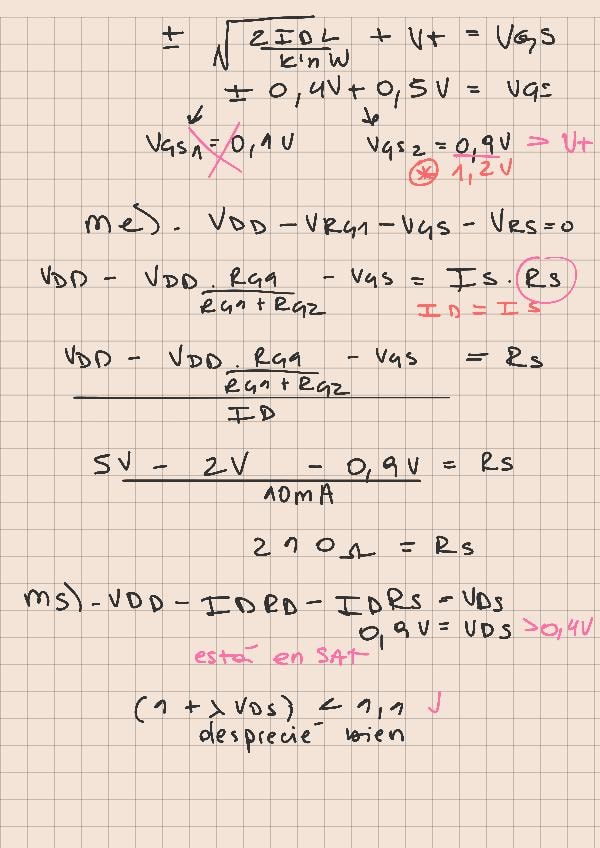 ± √(2IDL / K'nW) + Vt = VGS
± 0,4V + 0,5V = VGS
VGS1 = 0,1V VGS2 = 0,9V > Vt
* 1,2V
me). VDD - VRG1 - VGS - VRS = 0
VDD - VDD . RG1 / (RG1 + RG2) - VGS = IS . RS
ID = IS
VDD - VDD . RG1 / (RG1 + RG2) - VGS = RS
ID
5V - 2V - 0,9V = RS
10mA
210Ω = RS
ms) - VDD - IDRD - IDRS - VDS
0,9V = VDS > 0,4V
está en SAT
(1 + λVDS) < 1,1 ✓
desprecié bien